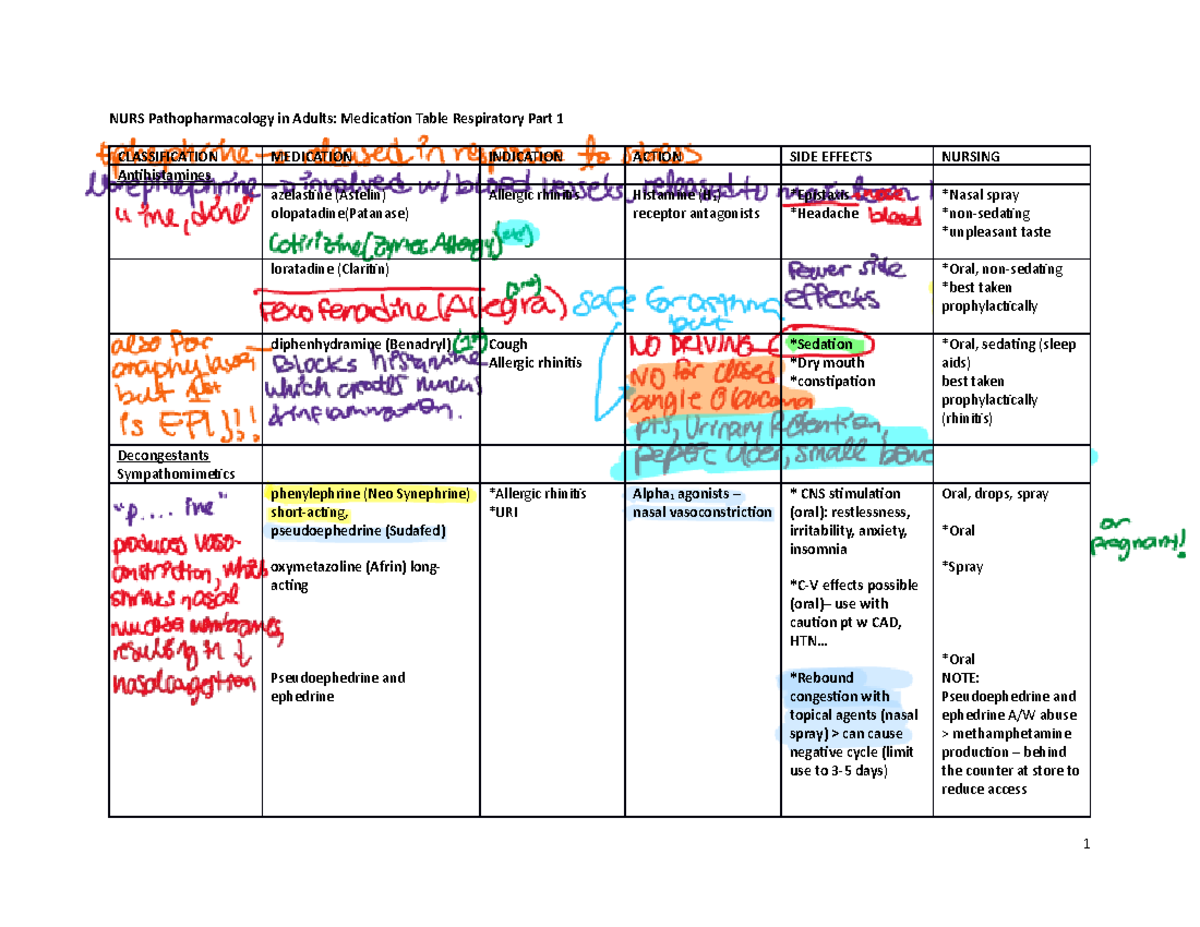 NURS Pathopharmacology in Adults: Medication Table Respiratory Part 1
CLASSIFICATION MEDICATION INDICATION ACTION SIDE EFFECTS NURSING
released in response to stress
Antihistamines
Norepinephrine involved w/ blood vessels, released to
"ine, dine"
azelastine (Astelin)
olopatadine(Patanase)
Allergic rhinitis
Histamine (H₁)
receptor antagonists
*Epistaxis
*Headache
blood
*Nasal spray
*non-sedating
*unpleasant taste
loratadine (Claritin)
Fexofenadine (Allegra)
safe for asthma
but
Fewer side
effects
*Oral, non-sedating
*best taken
prophylactically
also for
but 1st
is EPI!!!
diphenhydramine (Benadryl)
Blocks histamine
which creates mucus
& inflammation.
Cough
Allergic rhinitis
NO DRIVING
NO for closed
angle Glaucoma
pts, Urinary Retention,
peptic ulcer, small bowel
*Sedation
*Dry mouth
*constipation
*Oral, sedating (sleep
aids)
best taken
prophylactically
(rhinitis)
Decongestants
Sympathomimetics
"p.... ine"
produces vaso-
constriction, which
shrinks nasal
mucosa membranes,
resulting in ↓
nasal congestion
phenylephrine (Neo Synephrine)
short-acting,
pseudoephedrine (Sudafed)
oxymetazoline (Afrin) long-
acting
Pseudoephedrine and
ephedrine
*Allergic rhinitis
*URI
Alpha₁ agonists –
nasal vasoconstriction
* CNS stimulation
(oral): restlessness,
irritability, anxiety,
insomnia
*C-V effects possible
(oral)– use with
caution pt w CAD,
HTN…
*Rebound
congestion with
topical agents (nasal
spray) > can cause
negative cycle (limit
use to 3-5 days)
Oral, drops, spray
*Oral
*Spray
*Oral
NOTE:
Pseudoephedrine and
ephedrine A/W abuse
> methamphetamine
production – behind
the counter at store to
reduce access
or
pregnant!
1